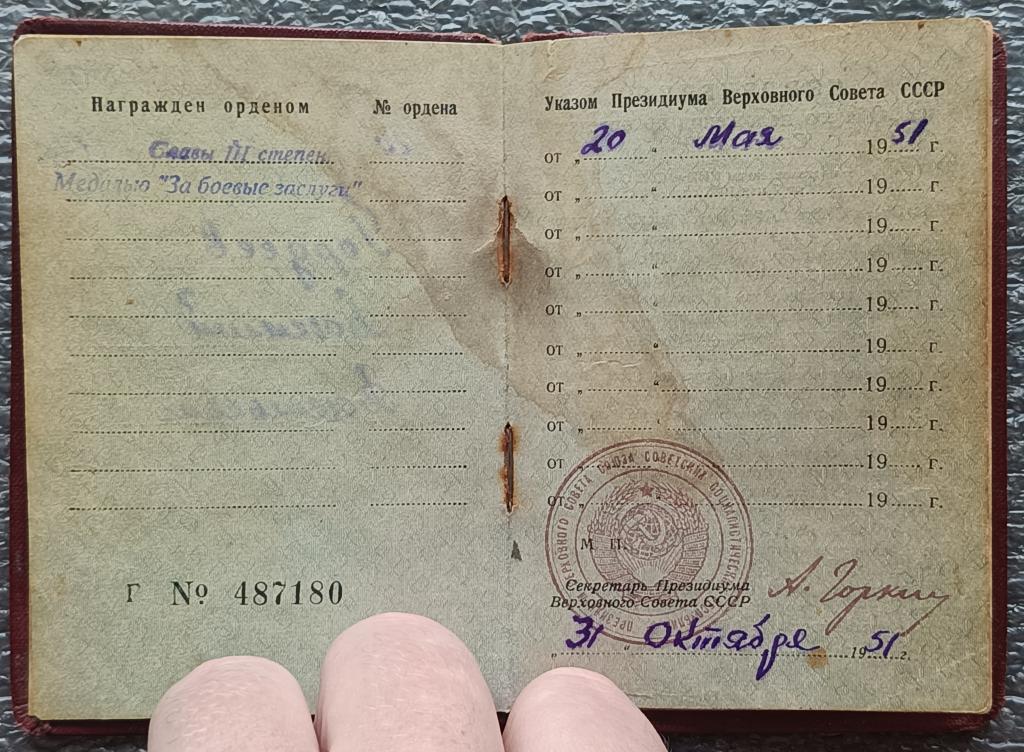 Награжден орденом № ордена
Славы III степен.
Медалью "За боевые заслуги"
Г № 487180
Указом Президиума Верховного Совета СССР
от „ 20 “ Мая 1951 г.
от „ “ 19 г.
от „ “ 19 г.
от „ “ 19 г.
от „ “ 19 г.
от „ “ 19 г.
от „ “ 19 г.
от „ 19 г.
от „ 19 г.
от „ 19 г.
М. П.
ПРЕЗИДИУМ ВЕРХОВНОГО СОВЕТА СОЮЗА СОВЕТСКИХ СОЦИАЛИСТИЧЕСКИХ РЕСПУБЛИК
Секретарь Президиума
Верховного Совета СССР
А. Горкин
„ 31 “ Октября 1951 г.